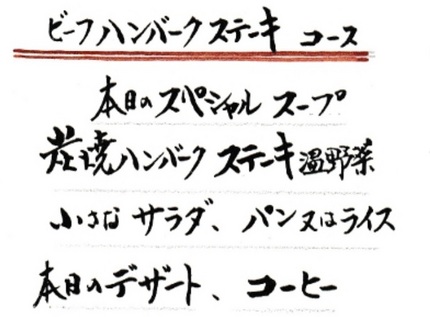 ビーフハンバークステーキ コース
本日のスペシャル スープ
炭焼ハンバーク ステーキ温野菜
小さな サラダ、パン又はライス
本日のデザート、コーヒー